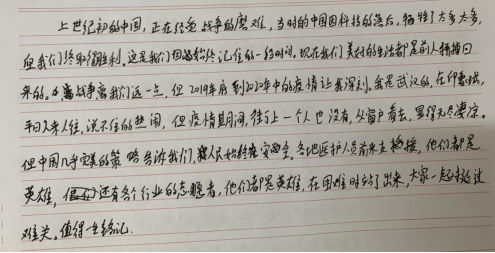 上世纪初的中国，正在经受战争的磨难，当时的中国因科技的落后，牺牲了太多太多，
但我们终取得胜利。这是我们因始终记住的一段时间，现在我们美好的生活都是前人拼搏回
来的。战争离我们远一点，但2019年底到2020年中的疫情让我深刻。我是武汉的，在印象里，
平日人来人往，说不住的热闹，但疫情期间，街上一个人也没有，从窗户看去，显得无尽凄凉。
但中国几乎完美的策略告诉我们，人民始终在安全。各地医护人员前来支援，他们都是
英雄，还有各个行业的志愿者，他们都是英雄，在困难时站了出来，大家一起挺过
难关。值得一生铭记